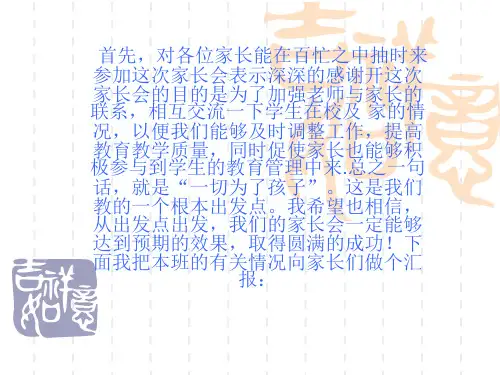 首先，对各位家长能在百忙之中抽时来
参加这次家长会表示深深的感谢开这次
家长会的目的是为了加强老师与家长的
联系，相互交流一下学生在校及 家的情
况，以便我们能够及时调整工作，提高
教育教学质量，同时促使家长也能够积
极参与到学生的教育管理中来.总之一句
话，就是“一切为了孩子”。这是我们
教的一个根本出发点。我希望也相信，
从出发点出发，我们的家长会一定能够
达到预期的效果，取得圆满的成功！下
面我把本班的有关情况向家长们做个汇
报：
吉祥如意